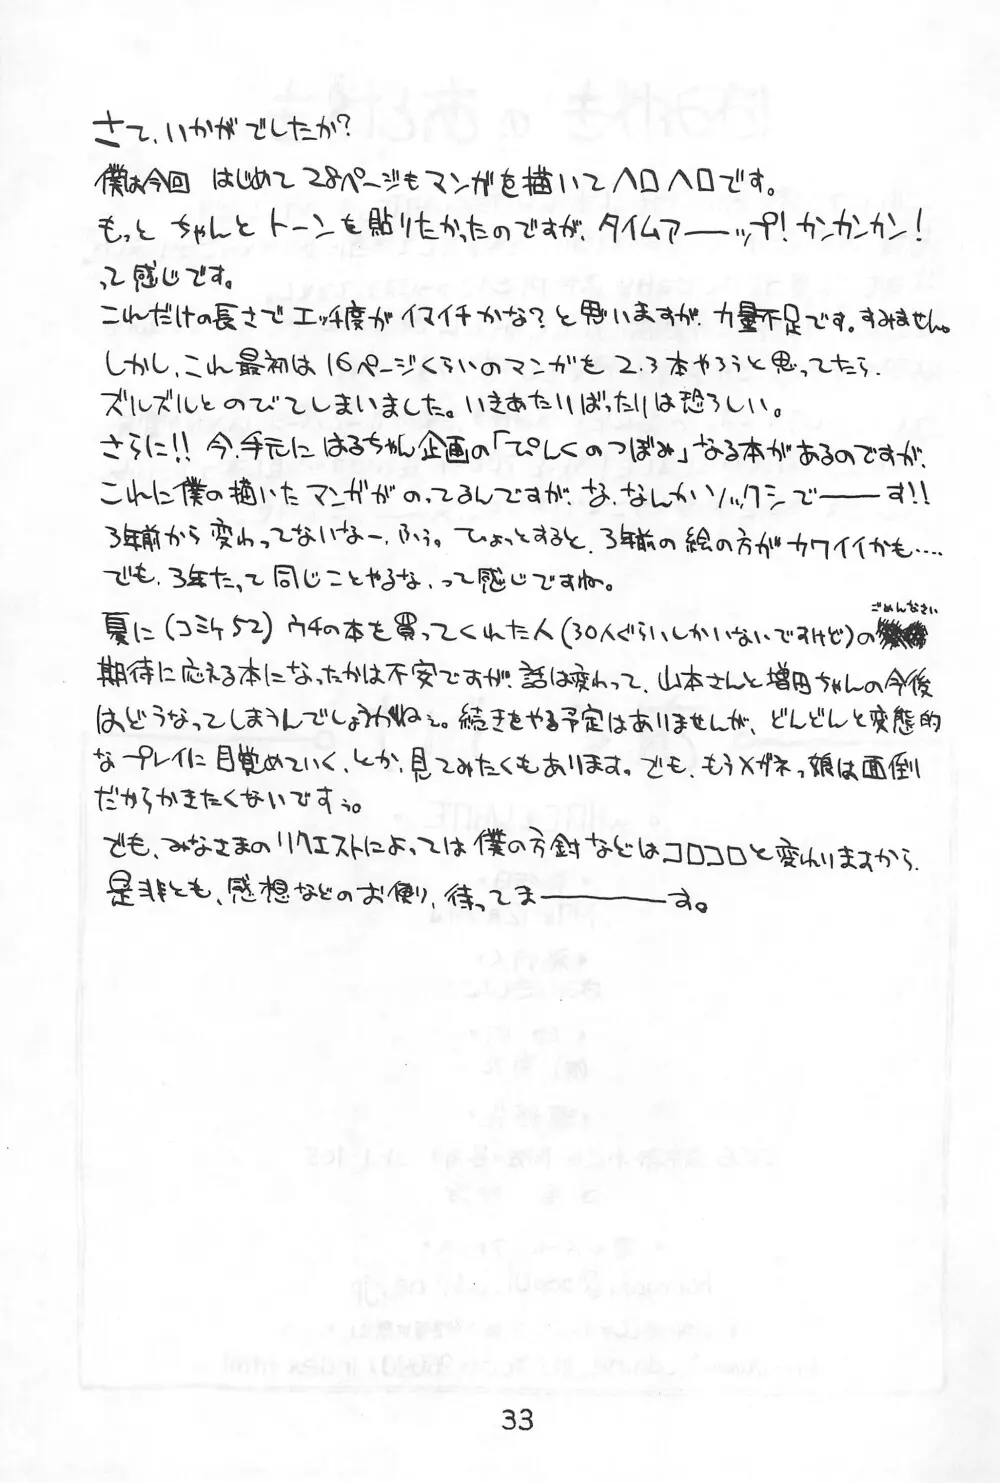 さて、いかがでしたか？
僕は今回 はじめて28ページもマンガを描いてヘロヘロです。
もっと ちゃんと トーンを貼りたかったのですが、タイムアーーップ！カンカンカン！
って感じです。
これだけの長さで エッチ度がイマイチかな？と思いますが、力量不足です。すみません。
しかし、これ最初は16ページくらいのマンガを2.3本やろうと思ってたら、
ズルズルとのびてしまいました。いきあたりばったりは恐ろしい。
さらに!! 今、手元に はるちゃん企画の「ぴんくのつぼみ」なる本があるのですが、
これに僕の描いたマンガがのってるんですが、な、なんかソックシでーーーす!!
3年前から変わってないなー、ふぅ。ひょっとすると、3年前の絵の方がカワイイかも‥‥
でも、3年たって同じことやるな、って感じですね。
ごめんなさい
夏に(コミケ52) ウチの本を買ってくれた人(30人ぐらいしかいないですけど)の
期待に応える本になったかは不安ですが、話は変わって、山本さんと増田ちゃんの今後
はどうなってしまうんでしょうがねぇ。続きをやる予定はありませんが、どんどんと変態的
なプレイに目覚めていく、とか、見てみたくもあります。でも、もうメガネっ娘は面倒
だからかきたくないですぅ。
でも、みなさまのリクエストによっては僕の方針などはコロコロと変わりますから、
是非とも、感想などのお便り、待ってまーーーーーす。
33